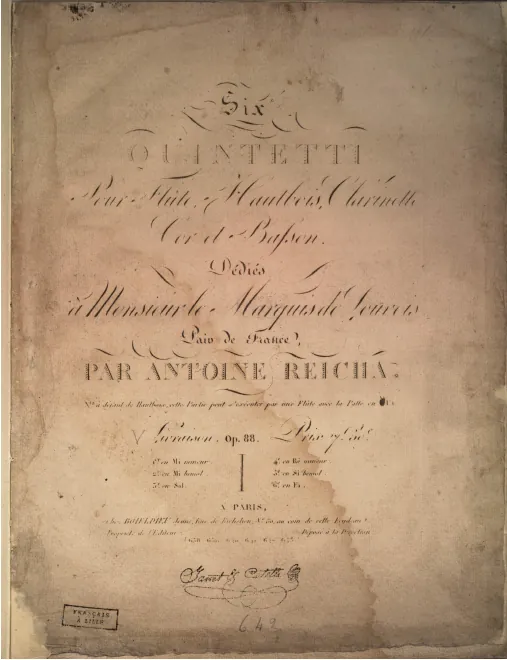 Six
QUINTETTI
Pour Flûte, Hautbois, Clarinette
Cor et Basson.
Dédiés
à Monsieur le Marquis de Louvois
Pair de France,
PAR ANTOINE REICHA.
à défaut de Hautbois, cette Partie peut s'exécuter par une Flûte avec la Patte en
Livraison. Op. 88. Prix
1er en Mi mineur. 4e en Ré mineur.
2e en Mi bémol. 5e en Si bémol.
3e en Sol. 6e en Fa.
A PARIS,
chez BOIELDIEU Jeune, Rue de Richelieu, No. 80, au coin de celle Feydeau.
Propriété de l'Editeur. Déposé à la Direction
649
FRANÇAIS